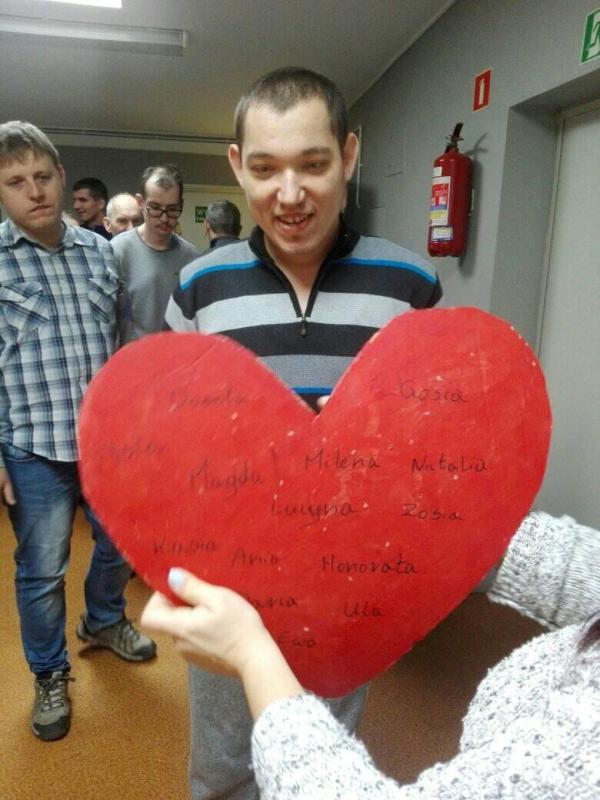 Gosia
Magda Milena Natalia
Lucyna Zosia
Kasia Ania Honorata
Daria Ula
Ewa